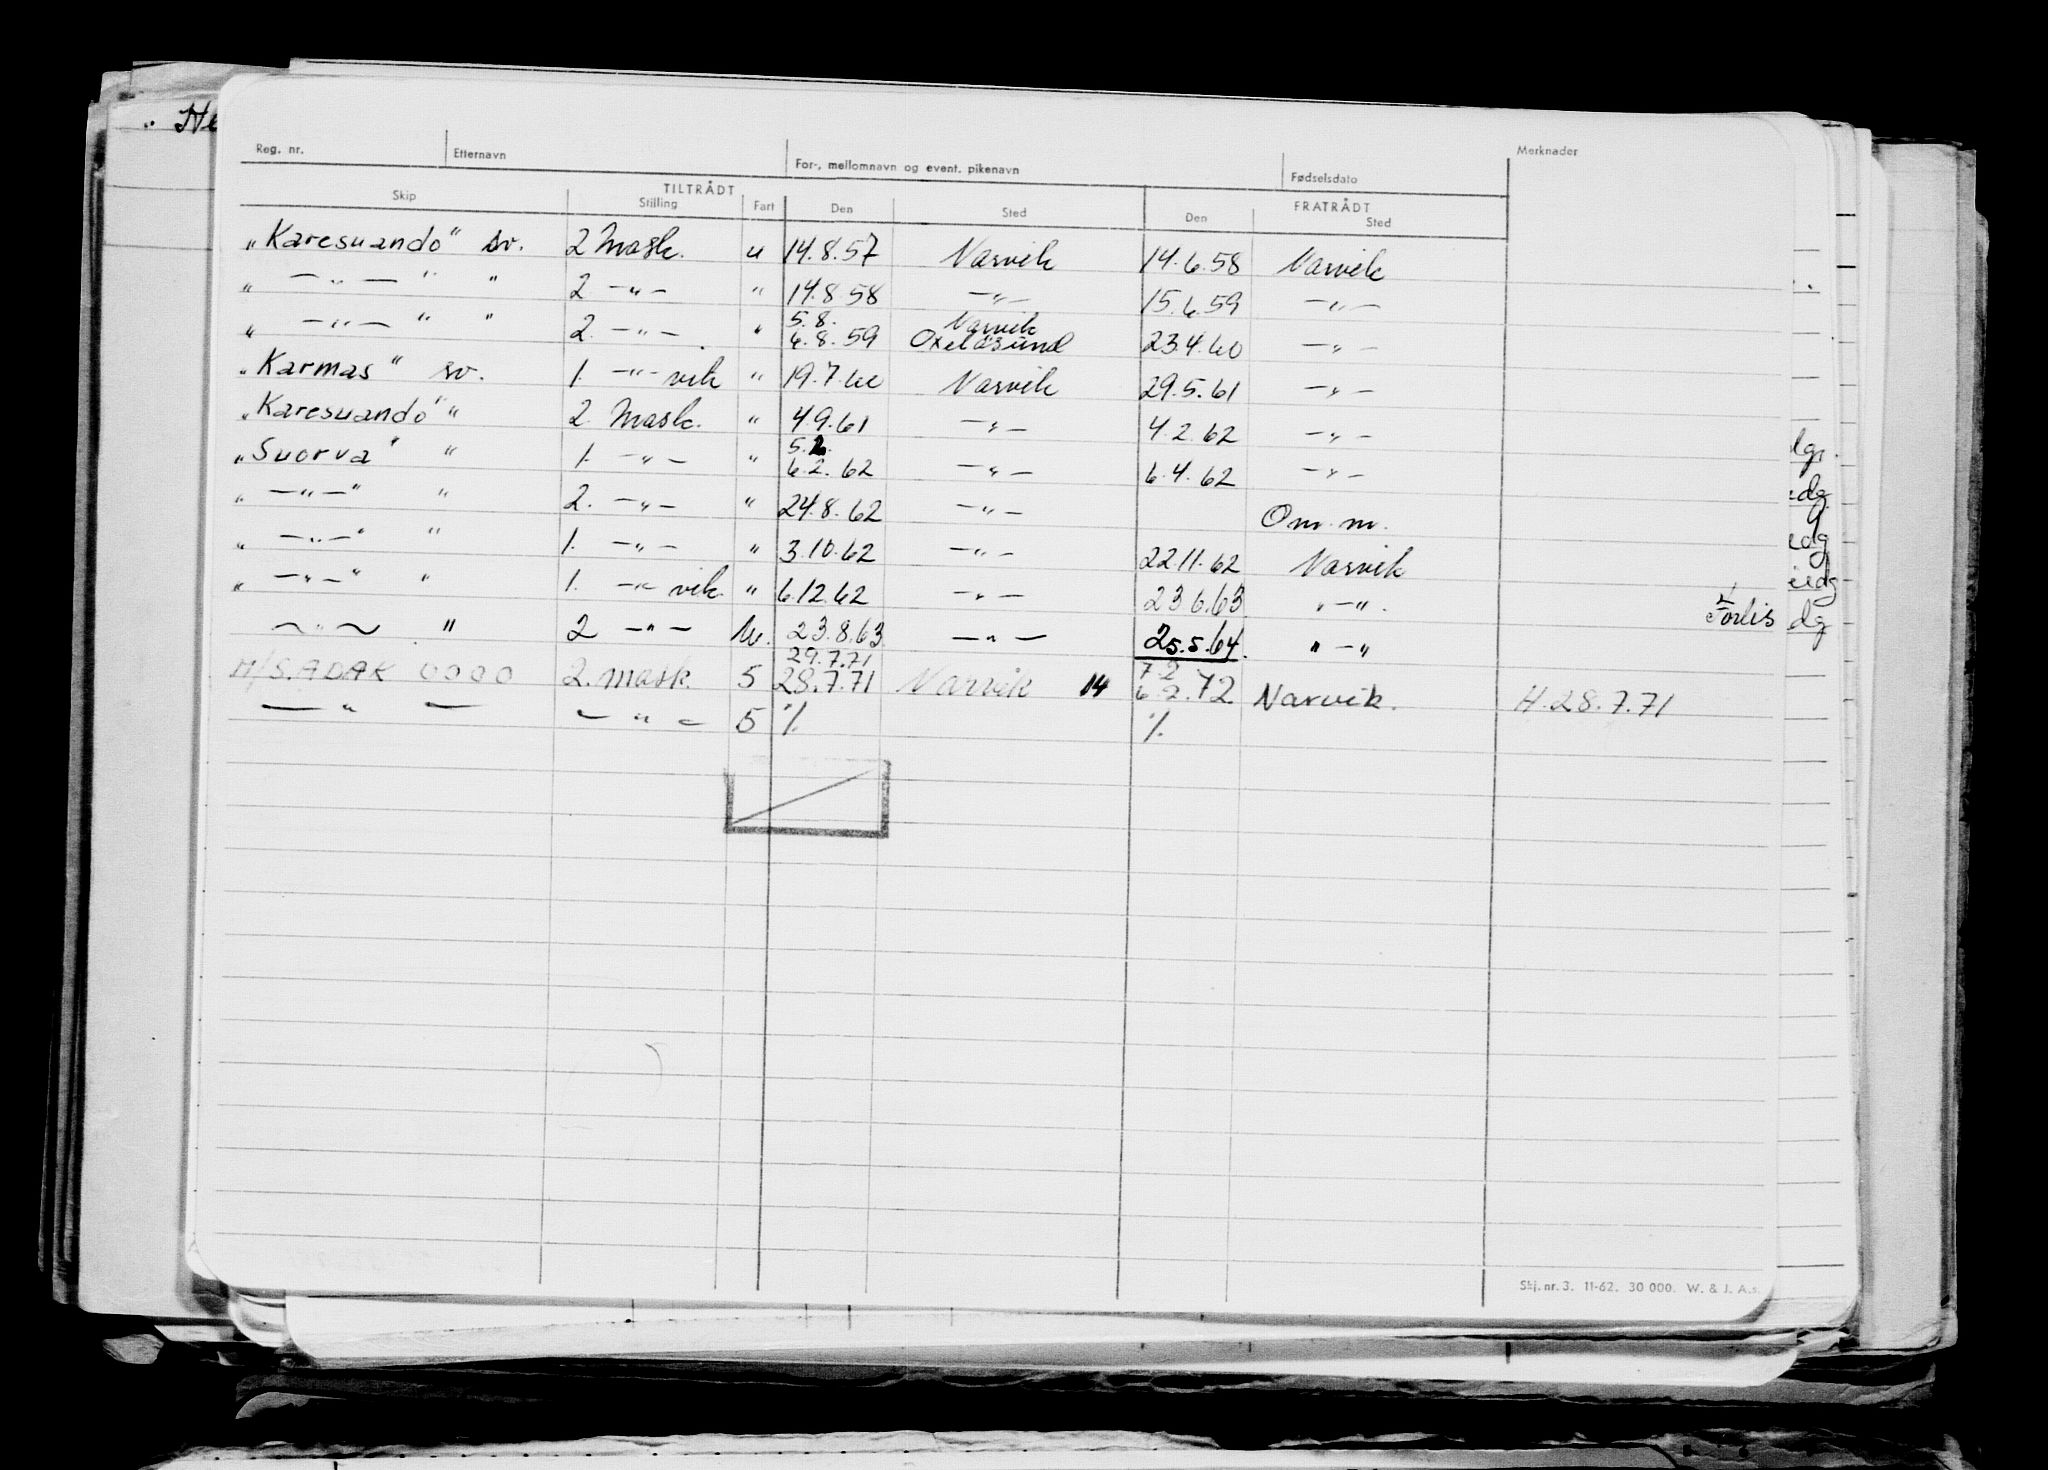 „ He
Reg. nr. Etternavn For-, mellomnavn og event. pikenavn Fødselsdato Merknader
TILTRÅDT FRATRÅDT
Skip Stilling Fart Den Sted Den Sted
„Karesuando" sv. 2 Mask. u 14.8.57 Narvik 14.6.58 Narvik
„ —„— " " 2 —„— " 14.8.58 —„— 15.6.59 —„—
5.8. Narvik
„ —„— " " 2. —„— " 6.8.59 Oxelösund 23.4.60 —„—
„Karmas" sv. 1. —„— vik " 19.7.60 Narvik 29.5.61 —„—
„Karesuando" " 2. Mask. " 4.9.61 —„— 4.2.62 —„—
5.2.
„Suorva" " 1. —„— " 6.2.62 —„— 6.4.62 —„—
„ —„— " " 2. —„— " 24.8.62 —„— Om. m.
„ —„— " " 1. —„— " 3.10.62 —„— 22.11.62 Narvik
„ —„— " " 1. —„— vik. " 6.12.62 —„— 23.6.63 „—„.
—„— " 2 —„— u. 23.8.63 —„— 25.5.64. „—„
29.7.71 7.2
M/S ADAK OOOO 2. mask. 5 28.7.71 Narvik 14 6.2.72 Narvik. H. 28.7.71
—„— —„— 5 ٪ ٪
Forlis
lgr.
edg
edg
eidg
dg
Skj. nr. 3. 11-62. 30 000. W. & J. A.s.